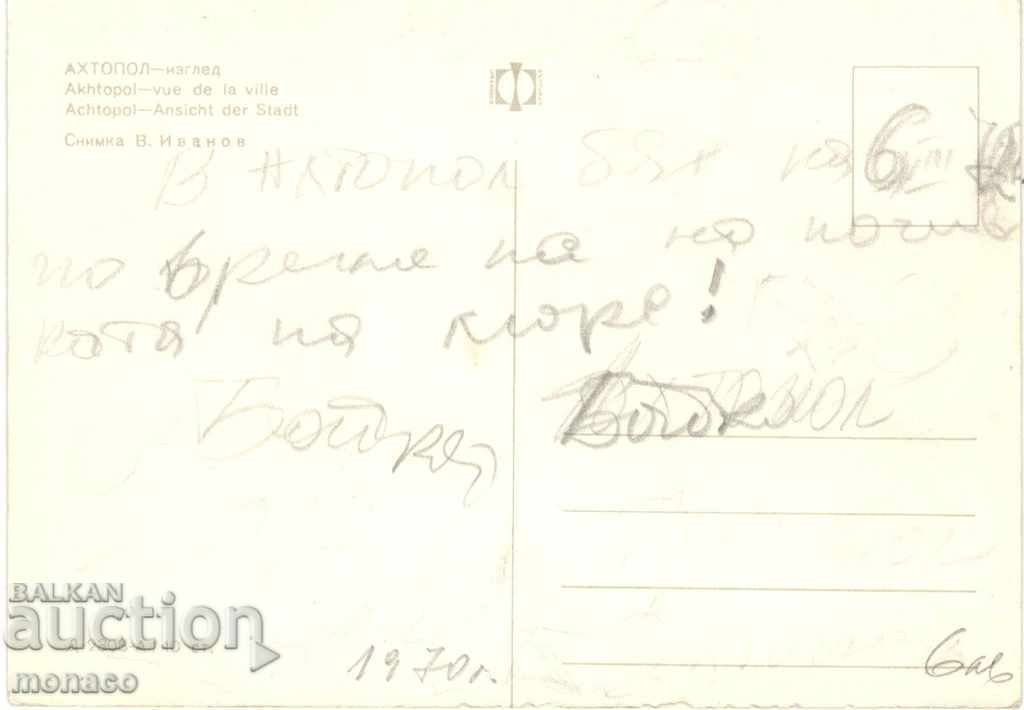 АХТОПОЛ—изглед
Akhtopol—vue de la ville
Achtopol—Ansicht der Stadt
Снимка В. Иванов
В Ахтопол бях на 6 VIII
по време на на почив
ката на море!
Бойка
Бойка
1970 г.
6 лв
BALKAN
auction
monaco